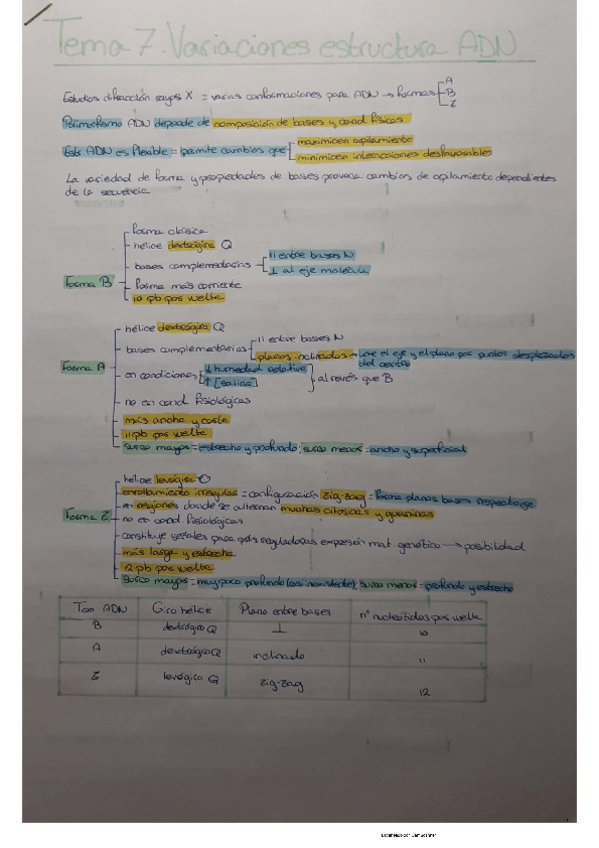 Tema 7. Variaciones estructura ADN
Estudios difracción rayos X = varias conformaciones para ADN → formas A B Z
Polimorfismo ADN depende de composición de bases y cond. físicas
Estr ADN es flexible = permite cambios que maximicen apilamiento
minimicen interacciones desfavorable
La variedad de forma y propiedades de bases provoca cambios de apilamiento dependientes
de la secuencia
Forma B
forma clásica
hélice dextrógira
bases complementarias
|| entre bases N
⊥ al eje molécula
forma más corriente
10 pb por vuelta
Forma A
hélice dextrógira
bases complementarias
|| entre bases N
planos inclinados → une el eje y el plano por puntos desplazados
del centro
en condiciones
↓ humedad relativa
↑ [salina]
al revés que B
no en cond. fisiológicas
más ancha y corta
11 pb por vuelta
surco mayor = estrecho y profundo; surco menor = ancho y superficial
Forma Z
hélice levógira
enrollamiento irregular = configuración zig-zag = forma planos bases respecto eje
en regiones donde se alternan muchas citosinas y guaninas
no en cond fisiológicas
constituye señales para prots reguladoras expresión mat genético → posibilidad
más larga y estrecha
12 pb por vuelta
surco mayor = muy poco profundo (casi inexistente); surco menor = profundo y estrecho
Tipo ADN Giro hélice Plano entre bases nº nucleótidos por vuelta
B dextrógiro ⊥ 10
A dextrógiro inclinado 11
Z levógira zig-zag 12